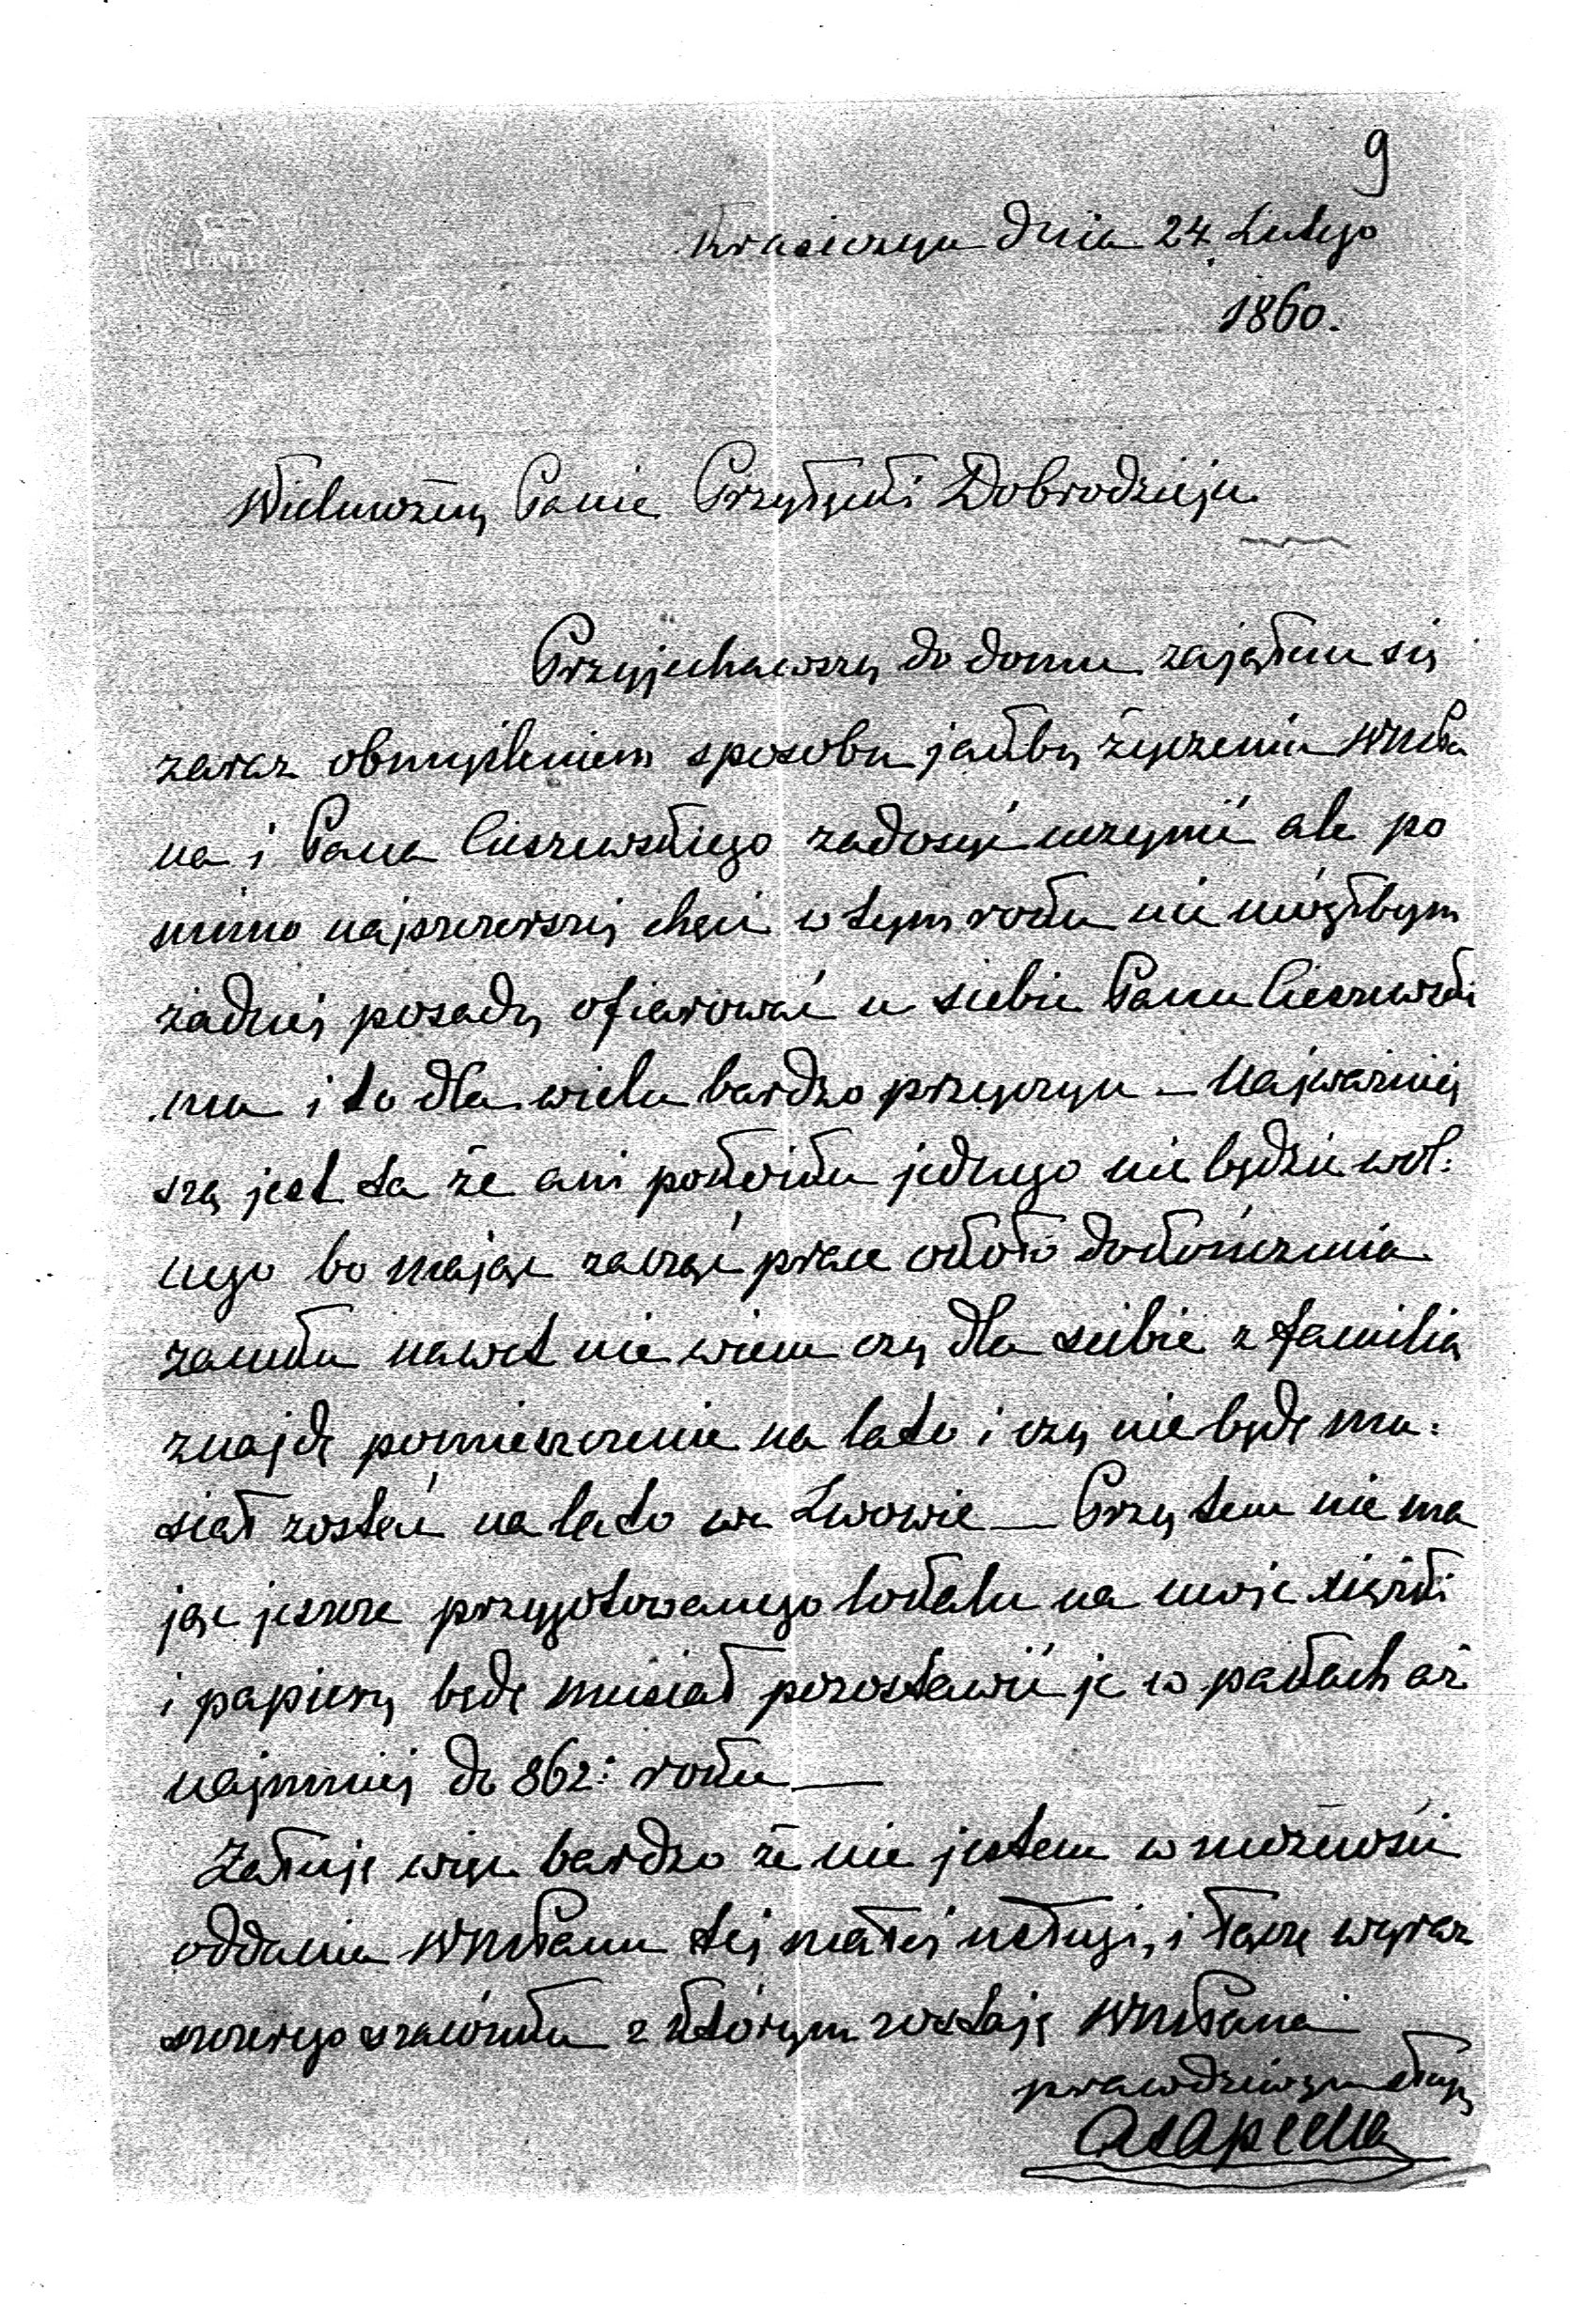 9
Krasiczyn dnia 24 Lutego
1860.
Wielmożny Panie Przyłęcki Dobrodzieju
Przyjechawszy do domu zająłem się
zaraz obmyśleniem sposobu jakby życzenia WnoPa
na i Pana Cieszewskiego zadosyć uczynić ale po
mimo najszczerszej chęci w tym roku nie mógłbym
żadnej posady ofiarować u siebie Panu Cieszewski
mu i to dla wielu bardzo przyczyn – Najważniej
szą jest ta że ani pokoiku jednego nie będzie wol:
nego bo mając zacząć prace około dokończenia
zamku nawet nie wiem czy dla siebie z familią
znajdę pomieszczenie na lato i czy nie będę mu:
siał zostać na lato we Lwowie — Przy tem nie ma
jąc jeszcze przygotowanego lokalu na moje książki
i papiery będę musiał pozostawić je w pakach aż
najmniej do 862: roku —
Żałuję więc bardzo że nie jestem w możności
oddania WnoPanu tej małej usługi, i łączę wyraz
szczerego szacunku z którym zostaję WnoPana
prawdziwym sługą
ASapieha